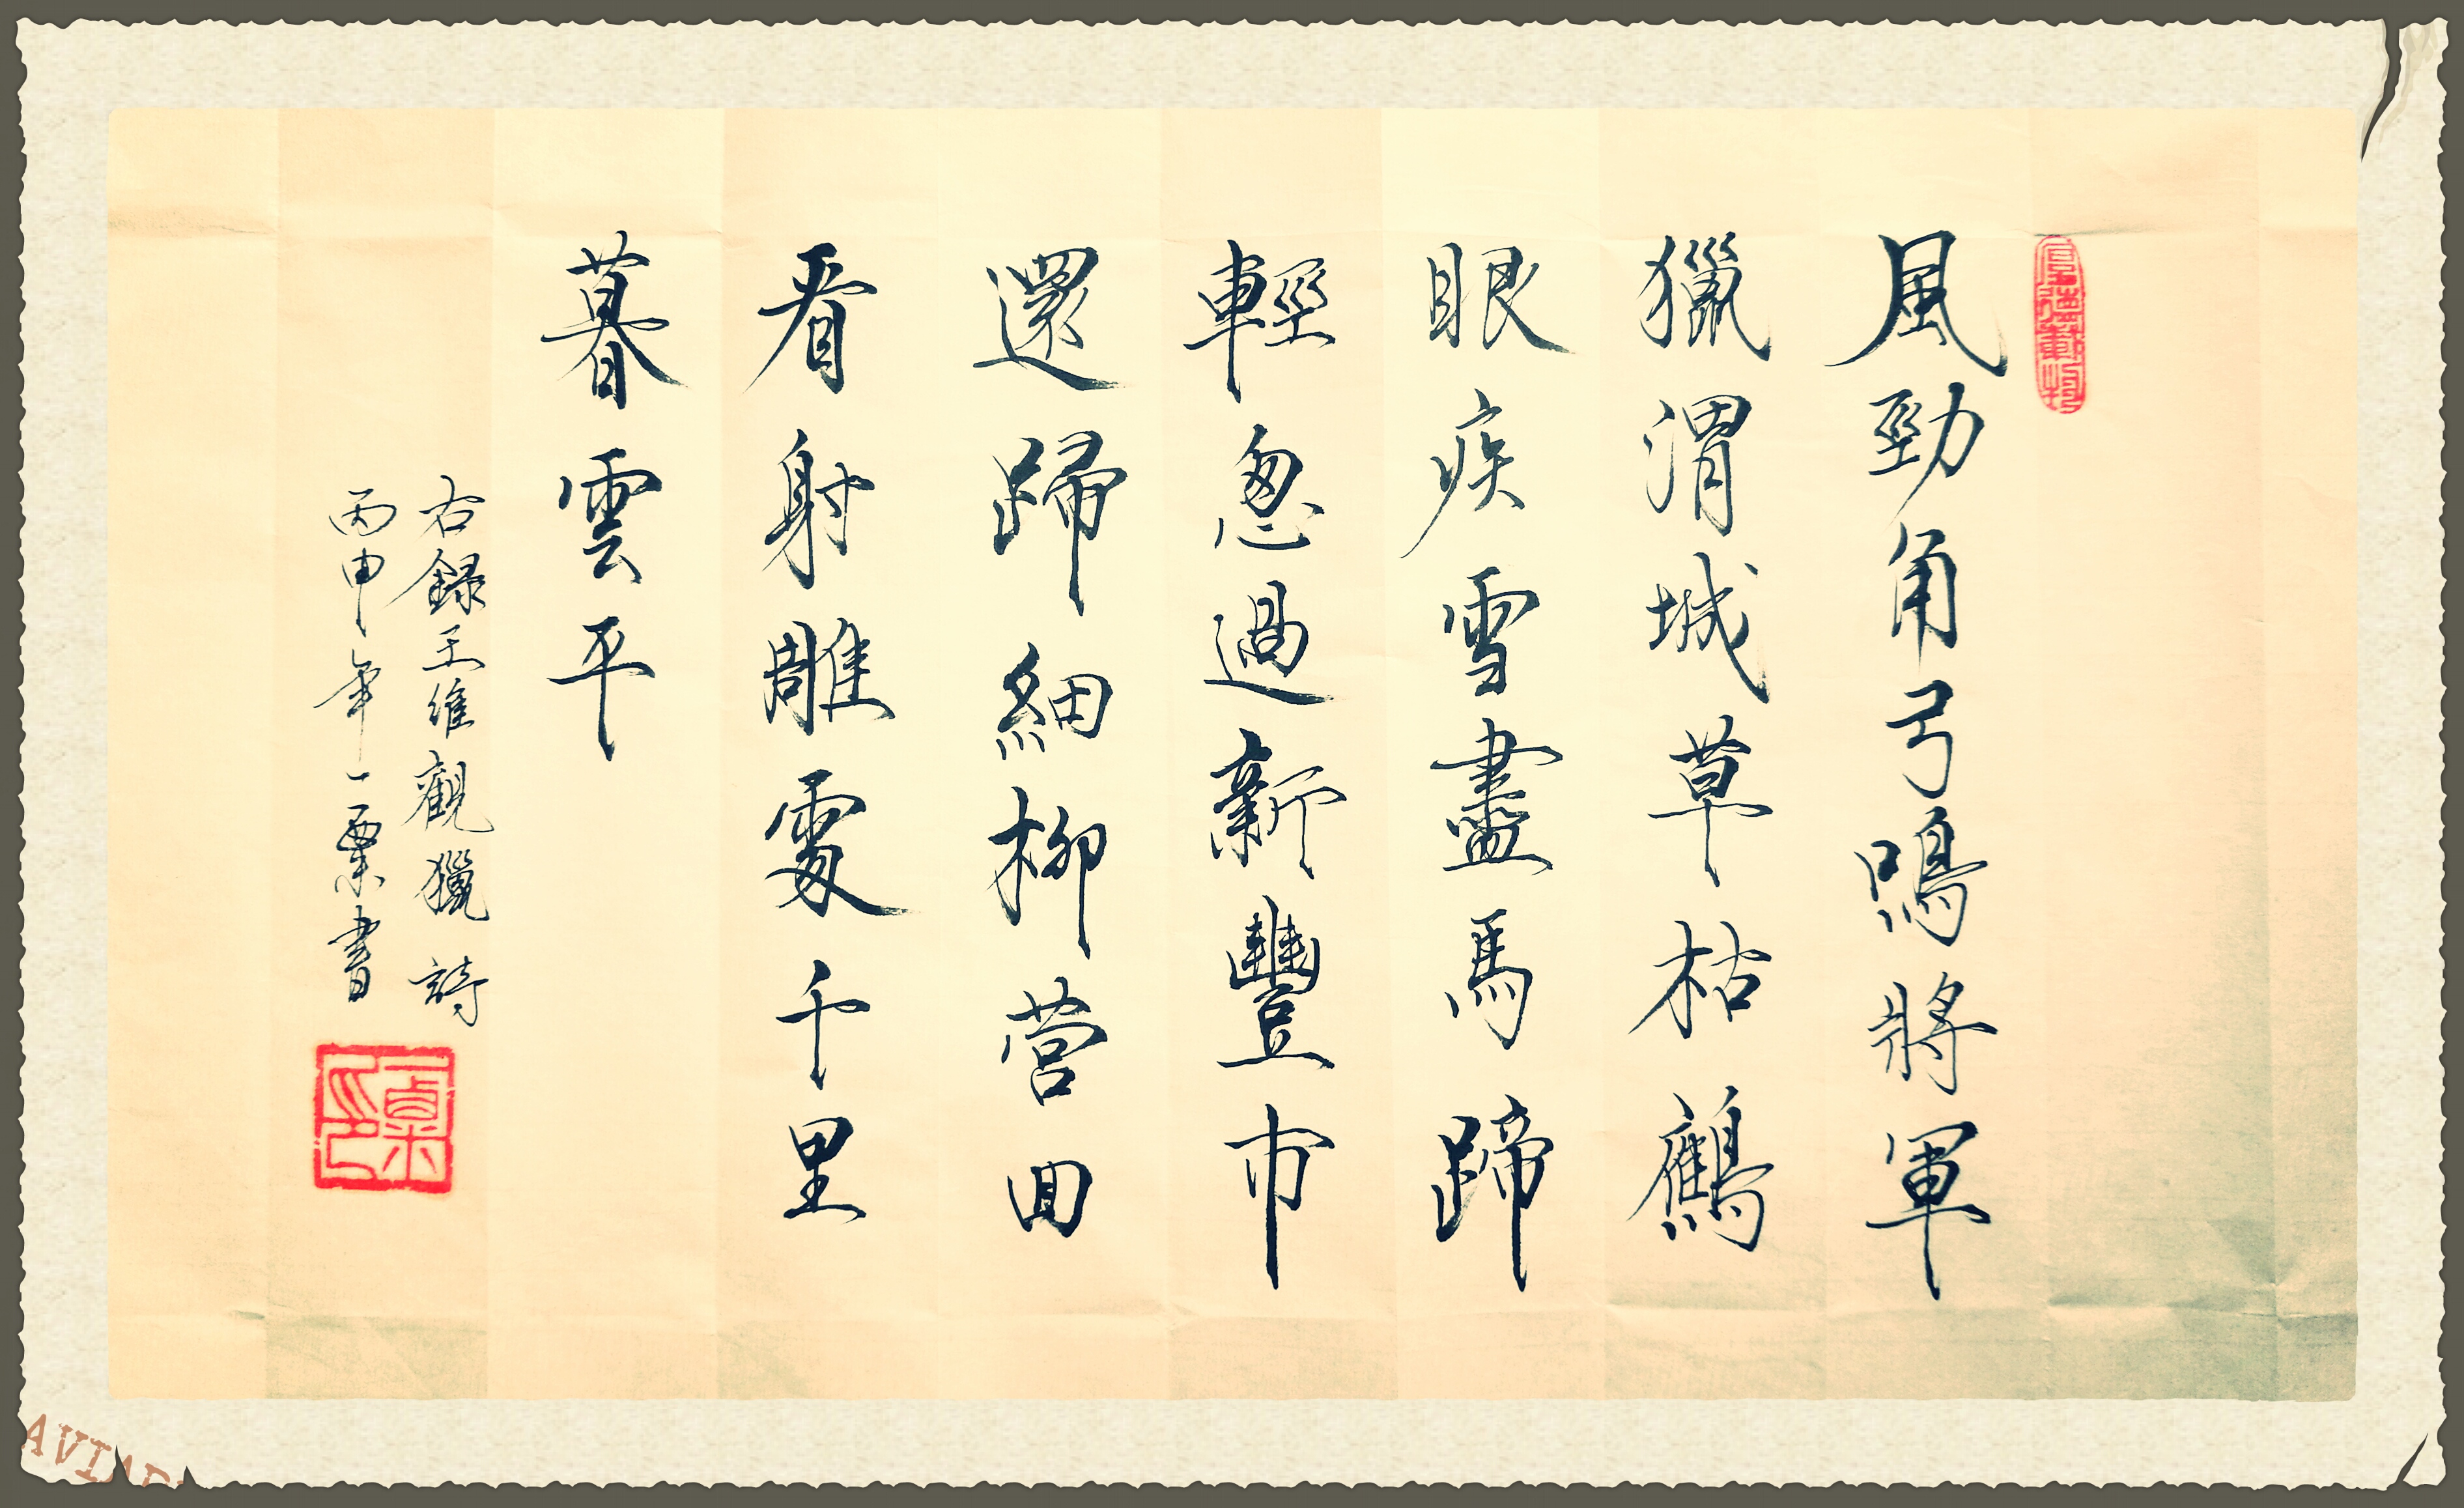 厚德載物
風勁角弓鳴將軍
獵渭城草枯鷹
眼疾雪盡馬蹄
輕忽過新豐市
還歸細柳營回
看射雕處千里
暮雲平
右録王維觀獵詩
丙申年一粟書
一粟印